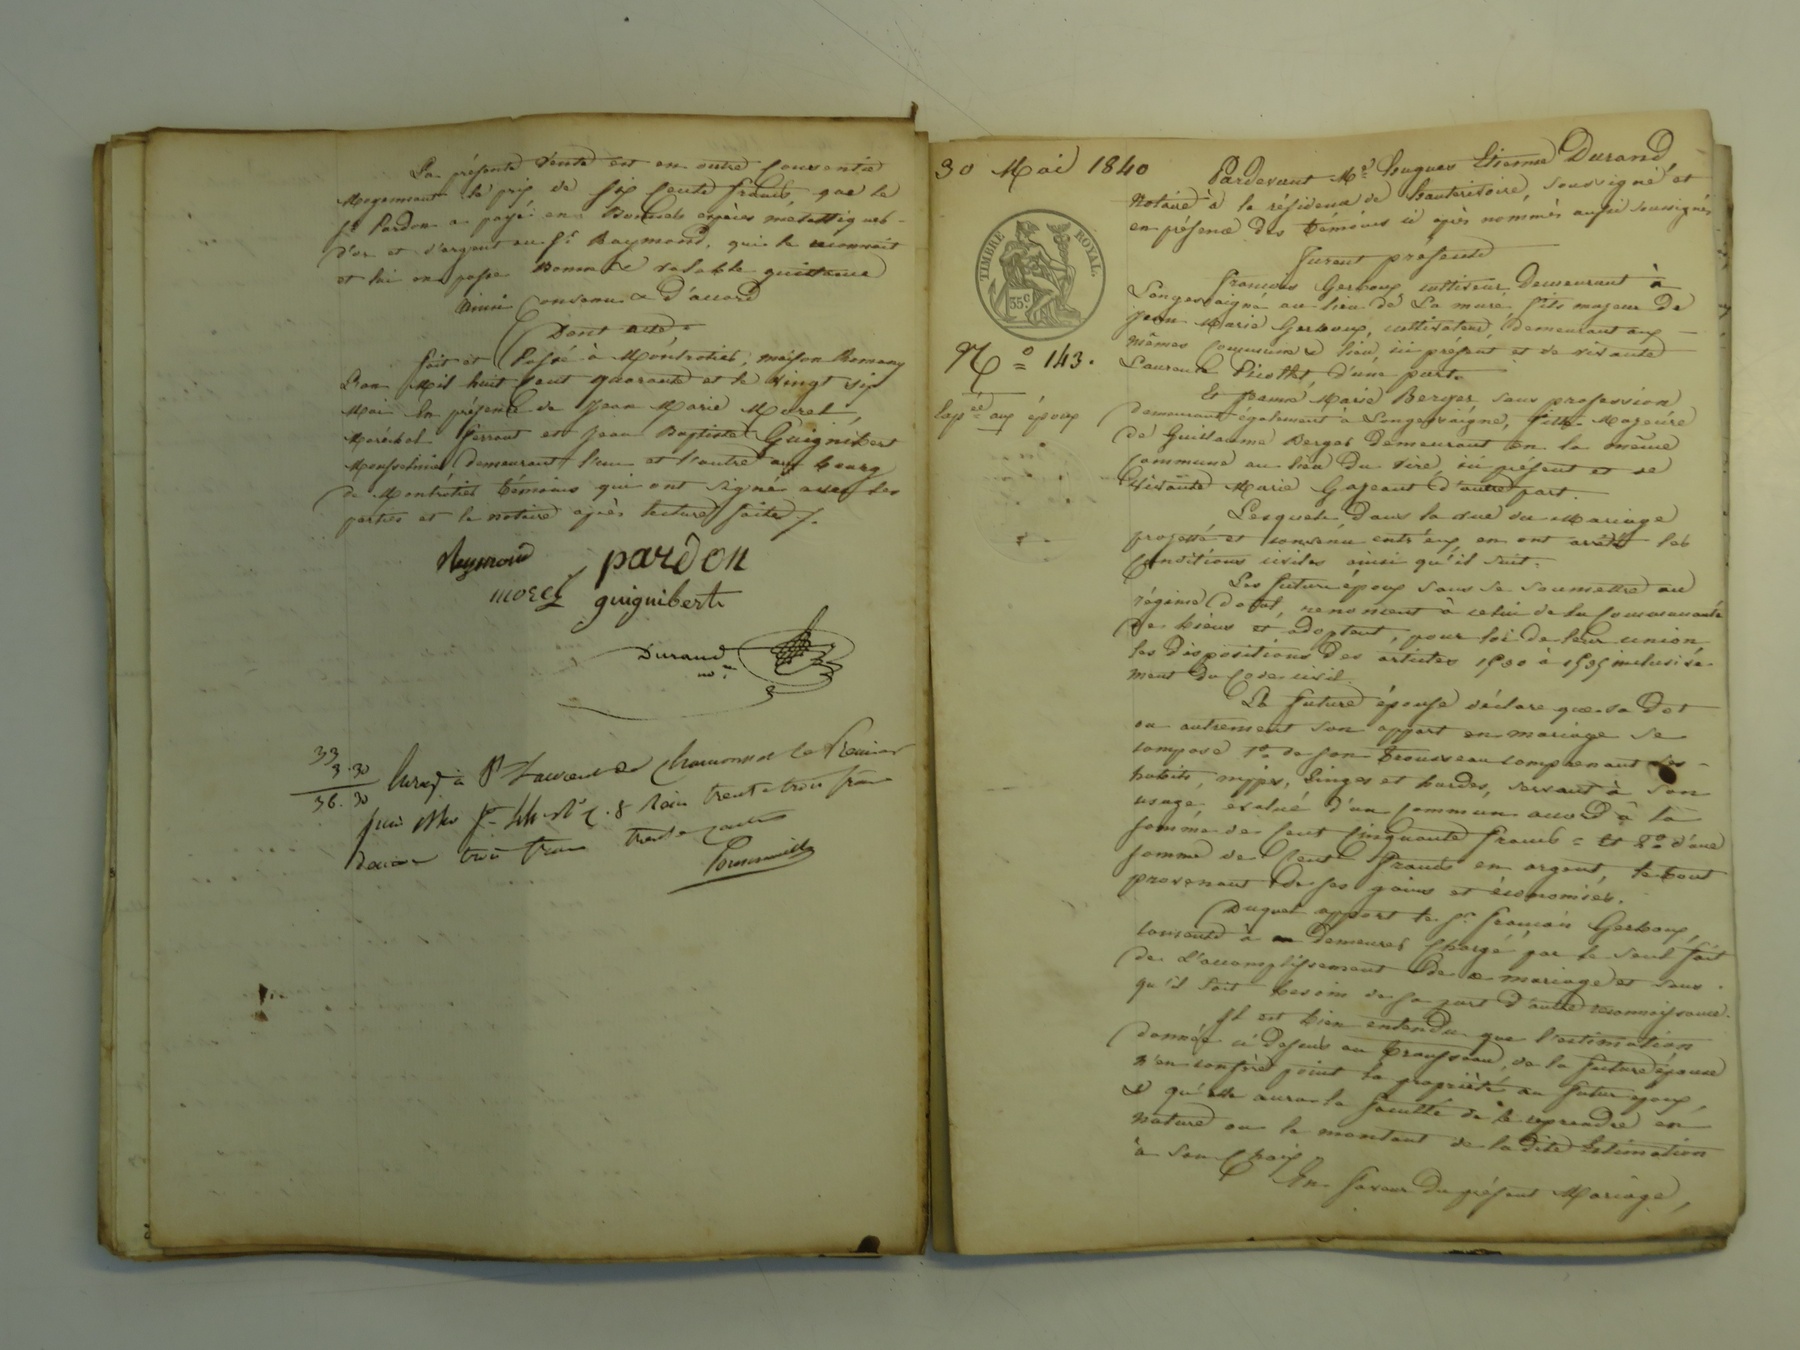 La présente Vente est en outre Consentie
Moyennant le prix de Six Cents francs, que le
Sr. Pardon a payé en Bonnes espèces métalliques
d'or et d'argent au Sr. Raymond, qui le reconnait
et lui en passe Bonne & valable quittance
Ainsi Convenu & D'accord
Dont acte.
fait et Passé à Montrotier, maison Romany
L'an Mil huit Cent quarante et le vingt six
Mai En présence de Jean Marie Morel,
Maréchal ferrant et Jean Baptiste Guignibert
Mousselinier demeurant l'un et l'autre au bourg
de Montrotier témoins qui ont signé avec les
parties et le notaire après lecture faite /.
Raymond pardon
morel guignibert
Durand
nore.
33
3.30
36.30
Enregé à St Laurent de Chamousset le Premier
juin 1840 fo 44 Ro C. 8 Reçu trente trois francs
décime trois francs trente centimes
30 Mai 1840
TIMBRE ROYAL.
35c.
No = 143.
Expée. aux époux
Pardevant Me. Hugues Etienne Durand,
Notaire à la résidence de hauterivoire, soussigné et
en présence des témoins ci après nommés aussi soussignés
furent présents
François Gerboux, cultivateur Demeurant à
Longessaigne au lieu de La mure, fils majeur de
Jean Marie Gerboux, cultivateur, demeurant aux
mêmes Commune & lieu, ici présent et de vivante
Laurence Picollet, d'une part.
Et Jeanne Marie Berger sans profession
demeurant également à Longessaigne, fille Majeure
de Guillaume Berger Demeurant en la même
commune au lieu Du Viré, ici présent et de
vivante Marie Gageant D'autre part.
Lesquels dans la vue du Mariage
projetté et convenu entr'eux en ont arrêté les
Conditions civiles ainsi qu'il suit.
Les futurs époux sans se soumettre au
régime Dotal, renoncent à celui de la Communauté
de biens et adoptent, pour loi de leur union
les dispositions des articles 1530 à 1535 inclusive-
ment du Code civil.
La future épouse déclare que sa Dot
ou autrement son apport en mariage se
compose 1o. de son trousseau comprenant ses
habits, nippes, linges et hardes, servant à son
usage, évalué d'un commun accord à la
somme de Cent Cinquante francs = Et 2o. d'une
somme de Cent francs en argent, le tout
provenant de ses gains et économies.
Duquel apport le Sr. François Gerboux,
consent à demeurer Chargé par le seul fait
de L'accomplissement de ce mariage et sans
qu'il soit besoin de sa part d'autre reconnaissance.
Il est bien entendu que l'estimation
donnée ci dessus au trousseau, de la future épouse
n'en confère point la propriété au futur époux,
& qu'elle aura la faculté de le reprendre en
nature ou le montant de la dite Estimation
à son Choix.
En faveur du présent Mariage,